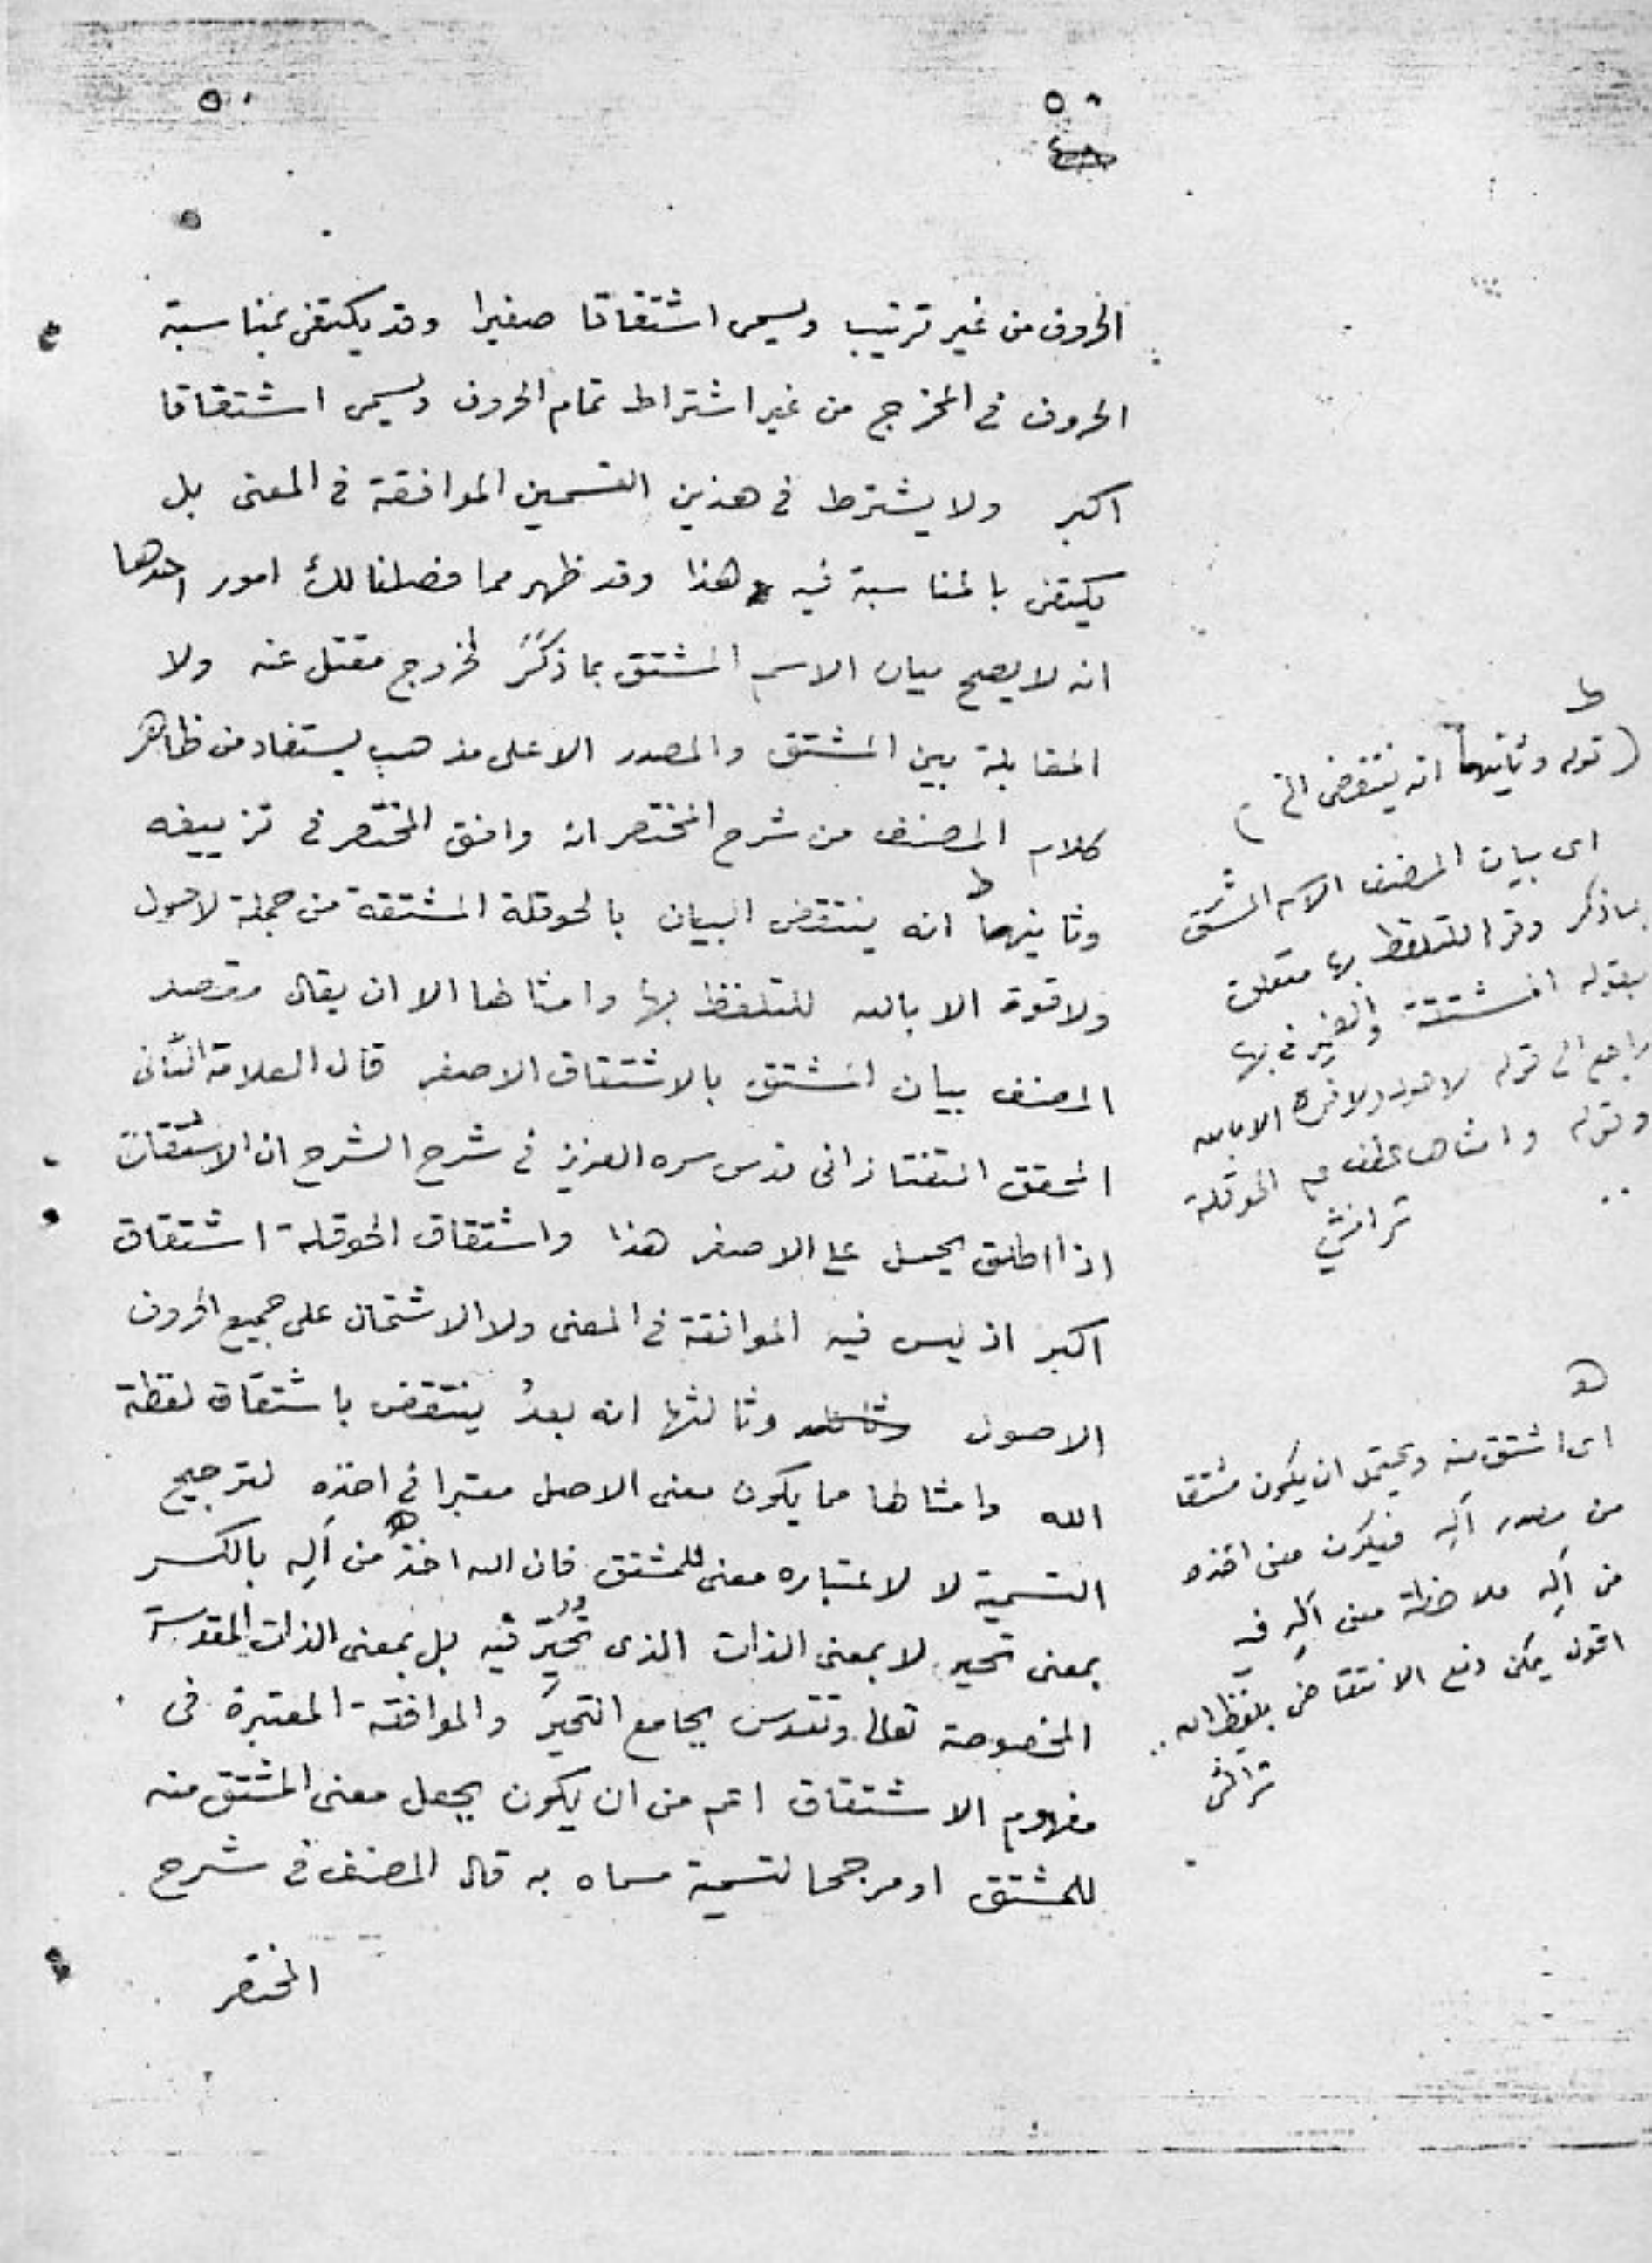 ٥٠
٥٠
الحروف من غير ترتيب ويسمى اشتقاقا صغيرا وقد يكتفى بمناسبة
الحروف في المخرج من غير اشتراط تمام الحروف ويسمى اشتقاقا
اكبر ولا يشترط في هذين القسمين الموافقة في المعنى بل
يكتفى بالمناسبة فيه هذا وقد ظهر مما فصلنا لك امور احدها
انه لا يصح بيان الاسم المشتق بما ذكر لخروج مقتل عنه ولا
المقابلة بين المشتق والمصدر الا على مذهب يستفاد من ظاهر
كلام المصنف من شرح المختصر انه وافق المختصر في تزييفه
وثانيهما انه ينتقض البيان بالحوقلة المشتقة من جملة لا حول
ولا قوة الا بالله للتلفظ بها وامثالها الا ان يقال مقصد
المصنف بيان المشتق بالاشتقاق الاصغر قال العلامة الثانى
المحقق التفتازانى قدس سره العزيز في شرح الشرح ان الاشتقاق
اذا اطلق يحمل على الاصغر هذا واشتقاق الحوقلة اشتقاق
اكبر اذ ليس فيه الموافقة في المعنى ولا الاشتمال على جميع الحروف
الاصول وثالثها انه بعدُ ينتقض باشتقاق لفظة
الله وامثالها مما يكون معنى الاصل معتبرا في اخذه لترجيح
التسمية لا لاعتباره معنى للمشتق فان الله اخذ من اَلِه بالكسر
بمعنى تحير لا بمعنى الذات الذى تُحُيِّرَ فيه بل بمعنى الذات المقدسة
المخصوصة تعالى وتقدس بجامع التحيُّر والموافقة المعتبرة في
مفهوم الاشتقاق اعم من ان يكون بجعل معنى المشتق منه
للمشتق او مرجحا لتسمية مسماه به قال المصنف في شرح
المختصر
ط
(قوله وثانيهما انه ينتقض الخ)
اى بيان المصنف الاسم المشتق
بما ذكر وقوله للتلفظ بها متعلق
بقوله المشتقة والضمير في بها
راجع الى قوله لا حول ولا قوة الا بالله
وقوله وامثالها عطف على الحوقلة
ه
اى اشتق منه ويحتمل ان يكون مشتقا
من مصدر اَلِه فيكون معنى اخذه
من اَلِه ملاحظة معنى اَلِه فيه
اقول يمكن دفع الانتقاض بلفظ الله